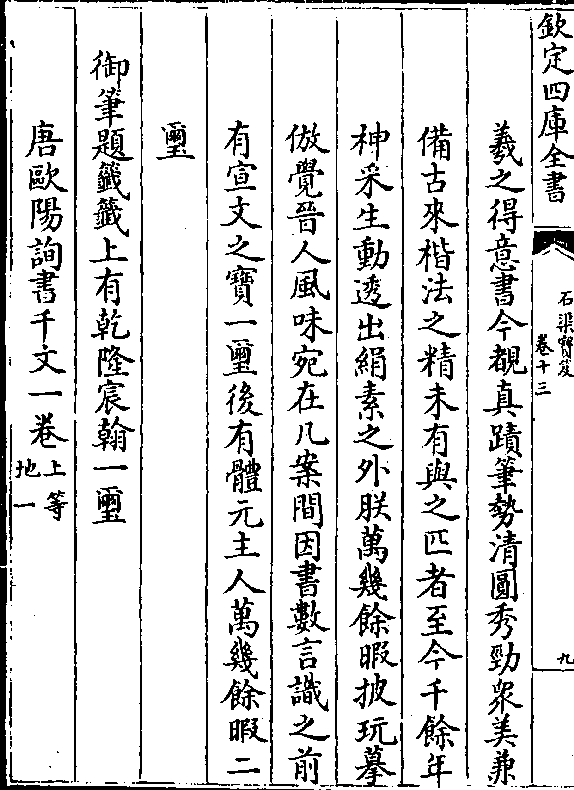 欽定四庫全書
石渠寳笈
卷十三
九
羲之得意書今覩真蹟筆勢清圓秀勁衆美兼
備古來楷法之精未有與之匹者至今千餘年
神采生動透出絹素之外朕萬幾餘暇披玩摹
倣覺晉人風味宛在几案間因書數言識之前
有宣文之寳一璽後有體元主人萬幾餘暇二
璽
御筆題籤籤上有乾隆宸翰一璽
唐歐陽詢書千文一卷上等
地一